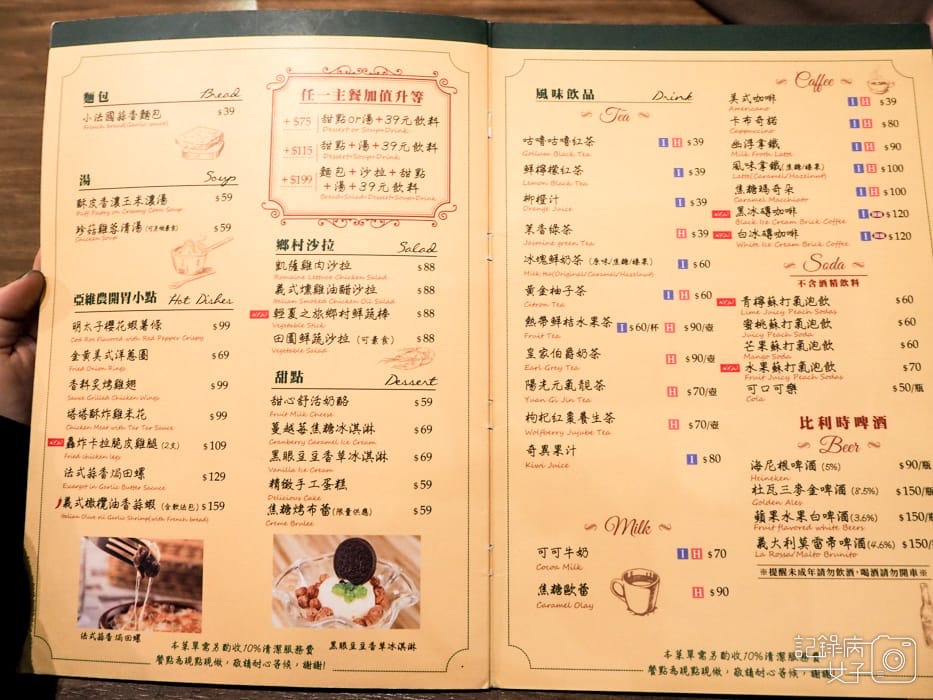 麵包 Bread
小法國蒜香麵包 $39
French bread(Garlic sauce)
湯 Soup
酥皮香濃玉米濃湯 $59
Puff Pastry on Creamy Corn Soup
珍菇雞蓉清湯(可為素食) $59
Chicken Soup
亞維農開胃小點 Hot Dishes
明太子櫻花蝦薯條 $99
Cod Roe Flavored with Red Pepper Crispy
金黃美式洋蔥圈 $69
Fried Onion Rings
香料炙烤雞翅 $99
Sauce Grilled Chicken Wings
塔塔酥炸雞米花 $99
Chicken Meat with Tar Tar Sauce
NEW 轟炸卡拉脆皮雞腿(2支) $109
Fried chicken legs
法式蒜香焗田螺 $129
Escargot in Garlic Butter Saucce
義式橄欖油香蒜蝦(含軟法包) $159
Italian Olive oil Garlic Shrimp(with French bread)
法式蒜香焗田螺
任一主餐加值升等
+$75 甜點or湯+39元飲料
Dessert or Soup+Drink
+$115 甜點+湯+39元飲料
Dessert+Soup+Drink
+$199 麵包+沙拉+甜點
+湯+39元飲料
Bread+Salad+Dessert+Soup+Drink
鄉村沙拉 Salad
凱薩雞肉沙拉 $88
Romaine Lettuce Chicken Salad
義式燻雞油醋沙拉 $88
Italian Smoked Chicken Oil Salad
NEW 輕夏之旅鄉村鮮蔬棒 $88
Vegetable Stick
田園鮮蔬沙拉(可素食) $88
Vegetable Salad
甜點 Dessert
甜心舒活奶酪 $59
Fruit Milk Cheese
蔓越莓焦糖冰淇淋 $69
Cranberry Caramel Ice Cream
黑眼豆豆香草冰淇淋 $69
Vanilla Ice Cream
精緻手工蛋糕 $59
Delicious Cake
焦糖烤布蕾(限量供應) $59
Creme Brulee
黑眼豆豆香草冰淇淋
本菜單需另酌收10%清潔服務費
餐點為現點現做,敬請耐心等候,謝謝!
風味飲品 Drink
Tea
咕嚕咕嚕紅茶 I H $39
Gollum Black Tea
鮮檸檬紅茶 I $39
Lemon Black Tea
柳橙汁 I $39
Orange Juice
茉香綠茶 H $39
Jasmine green Tea
冰塊鮮奶茶(原味/焦糖/榛果) I $60
Milk tea(Original/Caramel/Hazelnut)
黃金柚子茶 I H $60
Citron Tea
熱帶鮮桔水果茶 I $60/杯 H $90/壺
Fruit Tea
皇家伯爵奶茶 H $90/壺
Earl Grey Tea
陽光元氣龍茶 H $70/壺
Yuan Gi Jin Tea
枸杞紅棗養生茶 H $70/壺
Wolfberry Jujube Tea
奇異果汁 I $80
Kiwi Juice
Milk
可可牛奶 I H $70
Cocoa Milk
焦糖歐蕾 H $90
Caramel Olay
Coffee
美式咖啡 I H $39
Americano
卡布奇諾 I H $80
Cappuccino
幽浮拿鐵 I H $90
Milk Froth Latte
風味拿鐵(焦糖/榛果) I H $100
Latte(Caramel/Hazelnut)
焦糖瑪奇朵 I H $100
Caramel Macchiato
NEW 黑冰磚咖啡 I $120
Black Ice Cream Brick Coffee
NEW 白冰磚咖啡 I $120
White Ice Cream Brick Coffee
Soda
不含酒精飲料
NEW 青檸蘇打氣泡飲 $60
Lime Juicy Peach Sodas
蜜桃蘇打氣泡飲 $60
Juicy Peach Soda
芒果蘇打氣泡飲 $60
Mango Soda
NEW 水果蘇打氣泡飲 $70
Fruit Juicy Peach Sodas
可口可樂 $50/瓶
Cola
比利時啤酒
Beer
海尼根啤酒(5%) $90/瓶
Heineken
杜瓦三麥金啤酒(8.5%) $150/瓶
Golden Ales
蘋果水果白啤酒(3.6%) $150/瓶
Fruit flavored white Beers
義大利莫雷帝啤酒(4.6%) $150/
La Rossa/Malto Brunito
※提醒未成年請勿飲酒,喝酒請勿開車※
本菜單需另酌收10%清潔服務費
餐點為現點現做,敬請耐心等候,謝謝!
記錄病女子